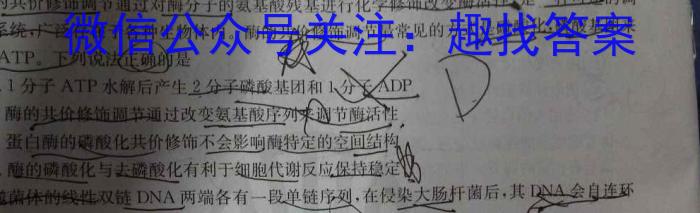 的共价修饰调节通过对酶分子的氨基酸残基进行化学修饰改变酶活性
系统,广
微信公众号关注:趣找答案
ATP。下列说法正确的是
1分子ATP水解后产生2分子磷酸基团和1分子ADP
酶的共价修饰调节通过改变氨基酸序列来调节酶活性
蛋白酶的磷酸化共价修饰不会影响酶特定的空间结构
酶的磷酸化与去磷酸化有利于细胞代谢反应保持稳定
D
噬菌体的线性双链DNA两端各有一段单链序列,在侵染大肠杆菌后,其DNA会自连环